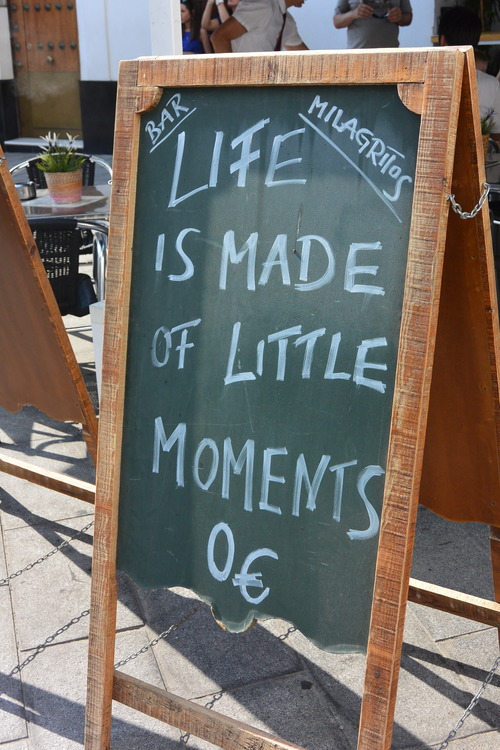 BAR
MILAGRITOS
LIFE
IS MADE
OF LITTLE
MOMENTS
0€